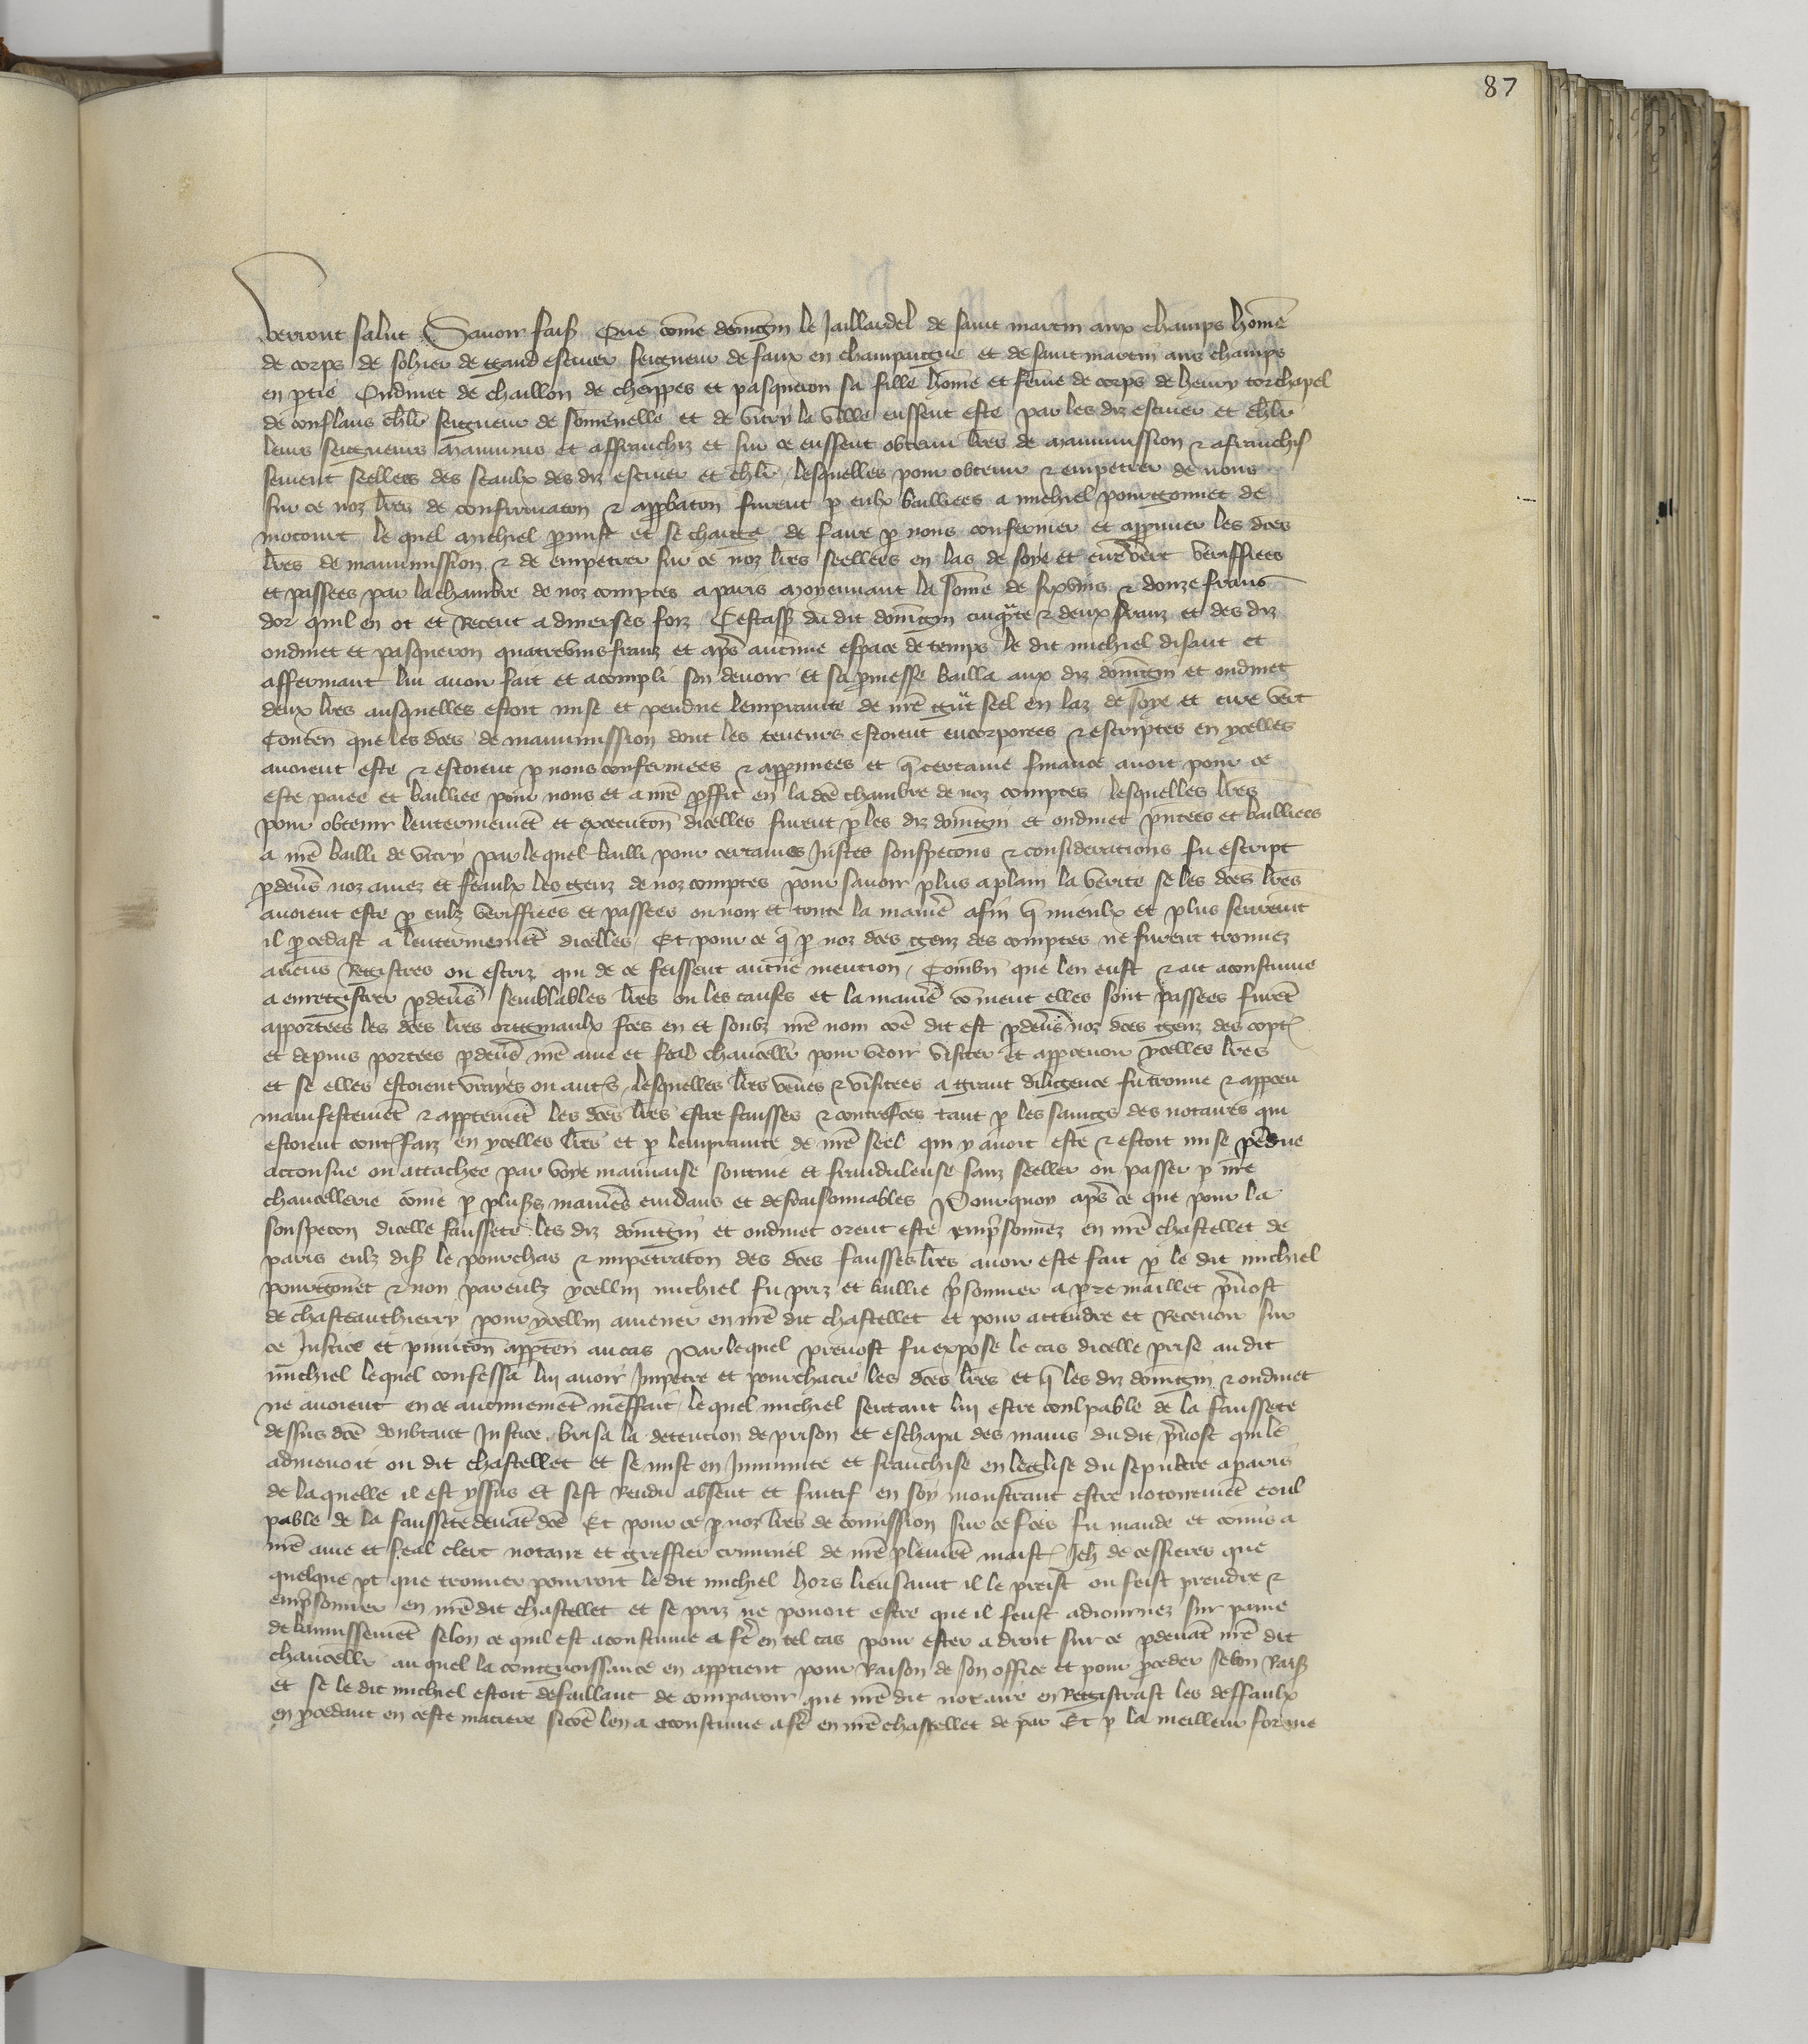 87
verront salut Savoir fais Que cōme domīgin le Jaillardel de saint martin aux champs hōme
de corps de sohier de gand escuier seigneur de faux en champaigne et de saint martin aus champs
en ptie Oudinet de chaillon de cheppes et pasqueron sa fille hōme et fēme de corps de henry torchapel
de conflans chlr seigneur de somēuelle et de vitry la ville eussent este par les diz escuier et chlr
leurs seigneurs manumis et affranchiz et sur ce eussent obtenu lres de manumission & afranchis
sement seellees des seaulx des diz escuier et chlr lesquelles pour obtenir & empetrer de nous
sur ce noz lres de confirmacon & appbacon furent p eulx baillees a michiel pourgonnet de
mocourt le quel michiel pmist et se charga de faire p nous confermer et appuver les dces
lres de manumission & de empetrer sur ce noz lres seellees en las de soye et cire vert veriffiees
et passees par la chambre de noz comptes a paris moyennant la sōme de sixvins & douze frans
dor quil en ot et Recent a diuerses foiz Cestass du dit domīgin cinqte & deux franz et des diz
oudinet et pasqueron quatrevins franz et aps aucune espace de temps le dit michiel disant et
affermant lui avoir fait et acompli son devoir et sa pmesse bailla aux diz domīgin et oudinet
deux lres ausquelles estoit mise et pendue lemprainte de nre gnt seel en laz de soye et cire vert
Conten que les dces de manumission dont les teneurs estoient encorporees & escriptes en ycelles
avoient este & estoient p nous confermees & appuuees et q certaine finance avoit pour ce
este paiee et baillee pour nous et a nre pffit en la dce chambre de noz comptes lesquelles lres
pour obtenir lenterinemēt et execucōn dicelles furent p les diz domīgin et oudinet pntees et baillees
a nre bailli de vitry par lequel bailli pour certaines Justes souspecons & considerations fu escript
pdevs noz amez et feaulx les genz de noz comptes pour savoir plus aplain la verite se les dces lres
avoient este p eulz veriffiees et passees ou non et toute la maniē afin q mieulx et plus seuremt
il pcedast a lenterinemēt dicelles Et pour ce q p noz dces genz des comptes ne furent trouvez
aucuns Registres ou escriz qui de ce feissent aucune mention Combn que len eust & ait acoustume
a enregistrer pdevs semblables lres ou les causes et la maniē cōment elles sont passees furēt
apportees les dces lres originaulx fces en et soubz nre nom cōe dit est pdevs noz dces genz des copt
et depuis portees pdevs nre ame et feal chancellr pour veoir visiter et appcevoir ycelles lres
et se elles estoient vrayes ou autrs lesquelles lres veues & visitees a grant diligence fu trouve & appceu
manifestemēt & apptemēt les dces lres estre fausses & contrefces tant p les saings des notaires qui
estoient contfaiz en ycelles lres et p lemprainte de nre seel qui y avoit este & estoit mise pēdue
acconsue ou attachee par voye mauvaise soutive et frauduleuse sanz seeller ou passer p nre
chancellerie cōme p plusrs maniēs euidans et desraisonnables Pourquoy aps ce que pour la
souspecon dicelle faussete les diz domīgin et oudinet orent este emprsonnez en nre chastellet de
paris eulz dis le pourchas & impetracōn des dces fausses lres avoir este fait p le dit michiel
pourgonet & non par eulz ycellui michiel fu priz et baillie prsonnier a prre maillet prvost
de chasteauthierry pour ycellui amener en nre dit chastellet et pour attendre et Recevoir sur
ce Justice et punicōn appten au cas par lequel prevost fu expose le cas dicelle prise au dit
michiel lequel confessa lui avoir Impetre et pourchacie les dces lres et q les diz domīgin & oudinet
ne avoient en ce aucunemēt meffait le quel michiel sentant lui estre coulpable de la faussete
dessus dce doubtant Justice brisa la detention de prison et eschapa des mains du dit prvost qui le
admenoit ou dit chastellet et se mist en Jmmunite et franchise en leglise du sepulcre a paris
de laquelle il est yssus et sest Rendu absent et fuitif en soy monstrant estre notoiremēt coul
pable de la faussete devāt dce Et pour ce p noz lres de comission sur ce fces fu mande et comis a
nre ame et feal clerc notaire et greffier criminel de nre plement maist Jeh de cessieres que
quelque pt que trouver pourroit le dit michiel hors lieu saint il le preist ou feist prendre &
emprsonner en nre dit chastellet et se priz ne povoit estre que il feust adiournez sur paine
de bannissemēt selon ce quil est acoustume a fre en tel cas pour ester a droit sur ce pdevāt nre dit
chancellr au quel la congnoissance en apptient pour Raison de son office et pour pceder selon Rais
et se le dit michiel estoit defaillant de comparoir que nre dit notaire enRegistrast les deffaulx
en pcedant en ceste matiere sicōe len a acoustume a fre en nre chastellet de par Et p la meilleur forme